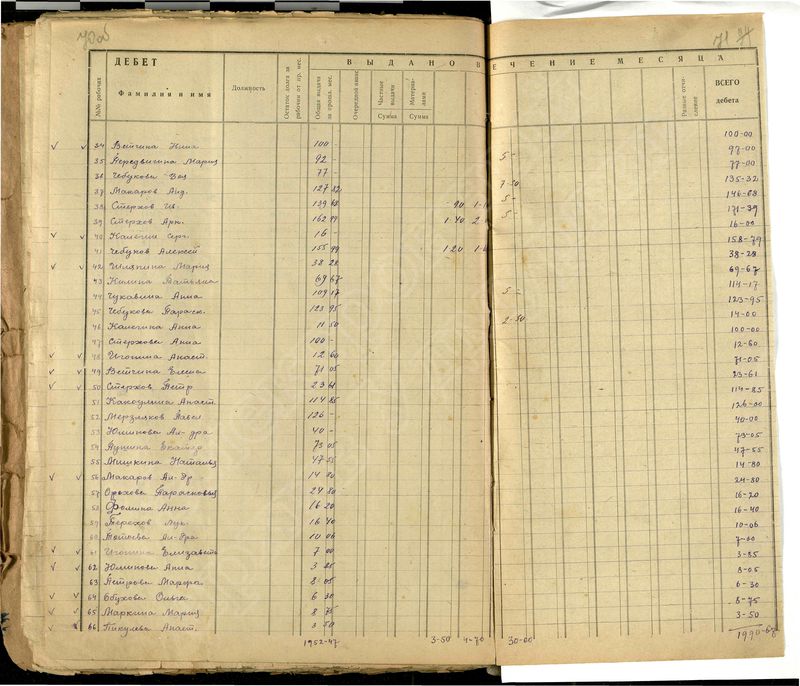 70об
71
ДЕБЕТ
ВЫДАНО В
ЕЧЕНИЕ МЕСЯЦА
№№ рабочих
Фамилия и имя
Должность
Остаток долга за рабочим от пр. мес.
Общая выдача за прошл. мес.
Очередной аванс
Частные выдачи
Сумма
Материалами
Сумма
Разные отчисление
ВСЕГО дебета
34 Вейгина 100 - 100-00
35 Передвигина Мариц 92 - 5- 97-00
36 Чебукова 77 - 77-00
37 Макаров Анд. 127 82 7-50 135-32
38 Стерхов Ив. 139 68 - 90 5- 146-68
39 Стерхов Арк. 162 99 1-40 5- 171-39
40 Калегин Серг. 16 - 16-00
41 Чебуков Алексей 155 99 1 20 158-79
42 Шляпина Мариц 38 28 38-28
43 Килина Татьяна 69 67 69-67
44 Чукавина Анна 109 17 5- 114-17
45 Чебукова Параск. 123 95 123-95
46 Калегина Анна 11 50 2-50 14-00
47 Стерхова Анна 100 - 100-00
48 Игонина Анаст. 12 60 12-60
49 Вейгина Елена 71 05 71-05
50 Стерхов Петр 23 61 23-61
51 Анаст. 114 85 114-85
52 Мерзляков Павел 126 - 126-00
53 Юминова Ал-дра 40 - 40-00
54 73 05 73-05
55 Мишкина Наталья 47 55 47-55
56 Макаров Ал-др 14 80 14-80
57 Орехова 24 80 24-80
58 Фомина Анна 16 20 16-20
59 Терехов Лук. 16 40 16-40
60 Ал-дра 10 06 10-06
61 Игонина Елизавета 7 00 7-00
62 Юминова Анна 3 85 3-85
63 Петрова Марфа 8 05 8-05
64 Обухова Ольга 6 30 6-30
65 Маркина Мариц 8 75 8-75
66 Пикулева Анаст. 3 50 3-50
1952-47 3-50 4-70 30-00